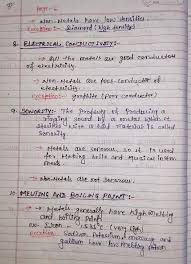 Page - 6
→ Non-Metals have low densities
Exception :- Diamond (High Density)
8. ELECTRICAL CONDUCTIVITY:-
→ All the metals are good conductor
of electricity
→ Non-Metals are poor conductor of
electricity
Exception :- graphite (Good Conductor)
9. SONORITY: The Property of Producing a
ringing sound by a metal when it
strikes with a hard material is called
Sonority
→ Metals are sonorous, so it is used
for making bells and Musical instru
ments
→ Non-Metals are not sonorous
10. MELTING AND BOILING POINT:-
→ Metals generally have high Melting
and boiling Point
ex. Iron - 1535°C (Very high)
Exception Sodium, Potassium, mercury and
gallium have low Melting point